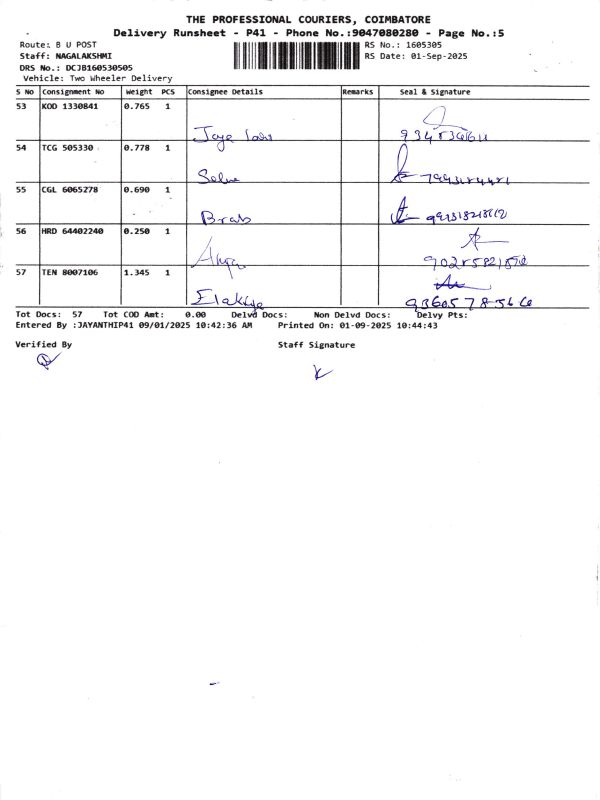 THE PROFESSIONAL COURIERS, COIMBATORE
Delivery Runsheet - P41 - Phone No.:9047080280 - Page No.:5
Route: B U POST RS No.: 1605305
Staff: NAGALAKSHMI RS Date: 01-Sep-2025
DRS No.: DCJB160530505
Vehicle: Two Wheeler Delivery
S No Consignment No Weight PCS Consignee Details Remarks Seal & Signature
53 KOD 1330841 0.765 1
54 TCG 505330 0.778 1
Selva
55 CGL 6065278 0.690 1
56 HRD 64402240 0.250 1
57 TEN 8007106 1.345 1
Elakkya
Tot Docs: 57 Tot COD Amt: 0.00 Delvd Docs: Non Delvd Docs: Delvy Pts:
Entered By :JAYANTHIP41 09/01/2025 10:42:36 AM Printed On: 01-09-2025 10:44:43
Verified By Staff Signature